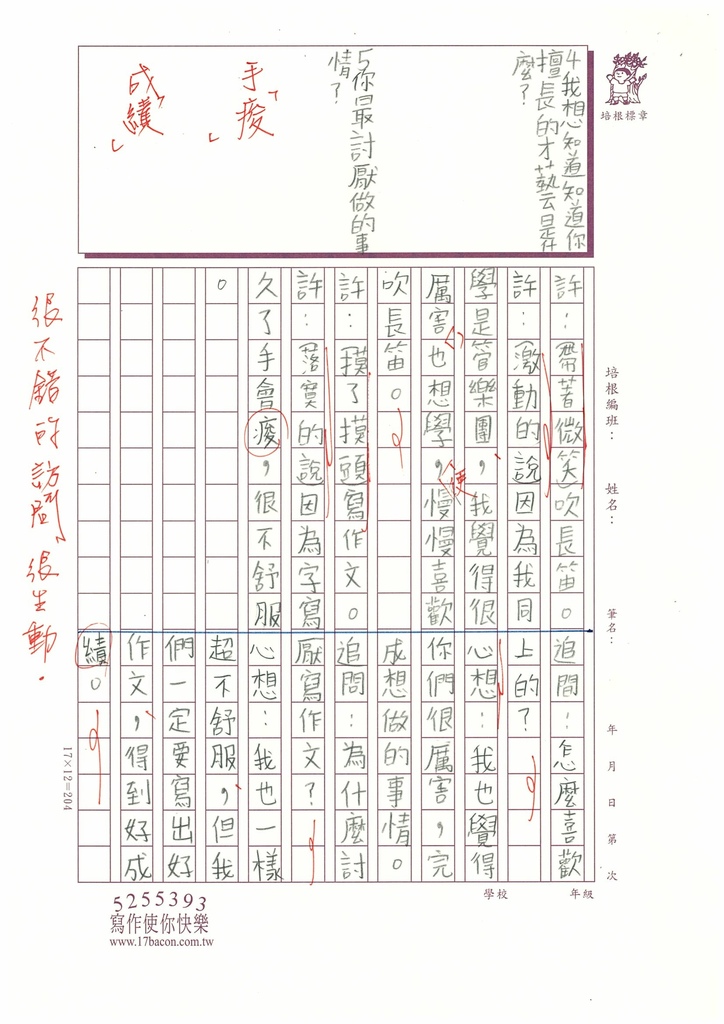 培根標章
4我想知道知道你
擅長的才藝是什
麼？
5你最討厭做的事
情？
手痠
成績
培根編班：
姓名：
筆名：
年 月 日 第 次
許：帶著微笑吹長笛。
許：激動的說因為我同
學是管樂團，我覺得很
厲害也想學，便慢慢喜歡
吹長笛。
許：摸了摸頭寫作文。
許：落寞的說因為字寫
久了手會痠，很不舒服
。
追問：怎麼喜歡
上的？
心想：我也覺得
你們很厲害，完
成想做的事情。
追問：為什麼討
厭寫作文？
心想：我也一樣
超不舒服，但我
們一定要寫出好
作文，得到好成
績。
很不錯的訪問，很生動。
17×12=204
學校
年級
5255393
寫作使你快樂
www.17bacon.com.tw